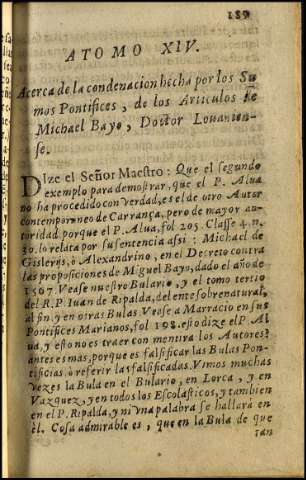 189
ATOMO XIV.
Acerca de la condenacion hecha por los Su-
mos Pontifices, de los Articulos de
Michael Bayo, Doctor Lovanien-
se.
DIze el Señor Maestro: Que el segundo
exemplo para demostrar, que el P. Alua
no ha procedido con verdad, es el de otro Autor
contemporaneo de Carrança, pero de mayor au-
toridad porque el P. Alua, fol 205. Classe 4. n.
20. lo relata por su sentencia assi: Michael de
Gisleriis, ò Alexandrino, en el Decreto contra
las proposiciones de Miguel Bayo, dado el año de
1567 Vease nuestro Bulario, y el tomo tercio
del R. P. Iuan de Ripalda, del ente sobrenatural,
al fin. y en otras Bulas Vease a Marracio en sus
Pontifices Marianos, fol 198. esto dize el P. Al
ua, y esto no es traer con mentira los Autores?
antes es mas, porque es falsificar las Bulas Pon-
tificias ò referir las falsificadas. Vimos muchas
vezes la Bula en el Bulario, en Lorca, y en
Vazquez, y en todos los Escolasticos, y tambien
en el P. Ripalda, y ni vna palabra se hallarà en
èl. Cosa admirable es, que en la Bula de que
tan